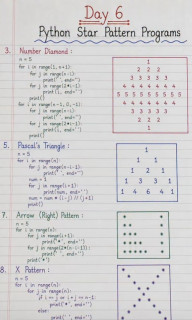 Day 6
Python Star Pattern Programs
3. Number Diamond :
n = 5
for i in range(1, n+1):
for j in range(n-i):
print(" ", end="")
for j in range(2*i-1):
print(i, end="")
print()
for i in range(n-1, 0, -1):
for j in range(n-i):
print(" ", end="")
for j in range(2*i-1):
print(i, end="")
print()
1
2 2 2
3 3 3 3 3
4 4 4 4 4 4 4
5 5 5 5 5 5 5 5 5
4 4 4 4 4 4 4
3 3 3 3 3
2 2 2
1
5. Pascal's Triangle :
n = 5
for i in range(n):
for j in range(n-i):
print(" ", end="")
num = 1
for j in range(i+1):
print(num, end=" ")
num = num * (i-j) // (j+1)
print()
1
1 1
1 2 1
1 3 3 1
1 4 6 4 1
7. Arrow (Right) Pattern :
n = 5
for i in range(n):
for j in range(i+1):
print("*", end="")
print("*")
8. X Pattern :
n = 5
for i in range(n):
for j in range(n):
if i == j or i + j == n-1:
print("*", end="")
else:
print(" ", end="")